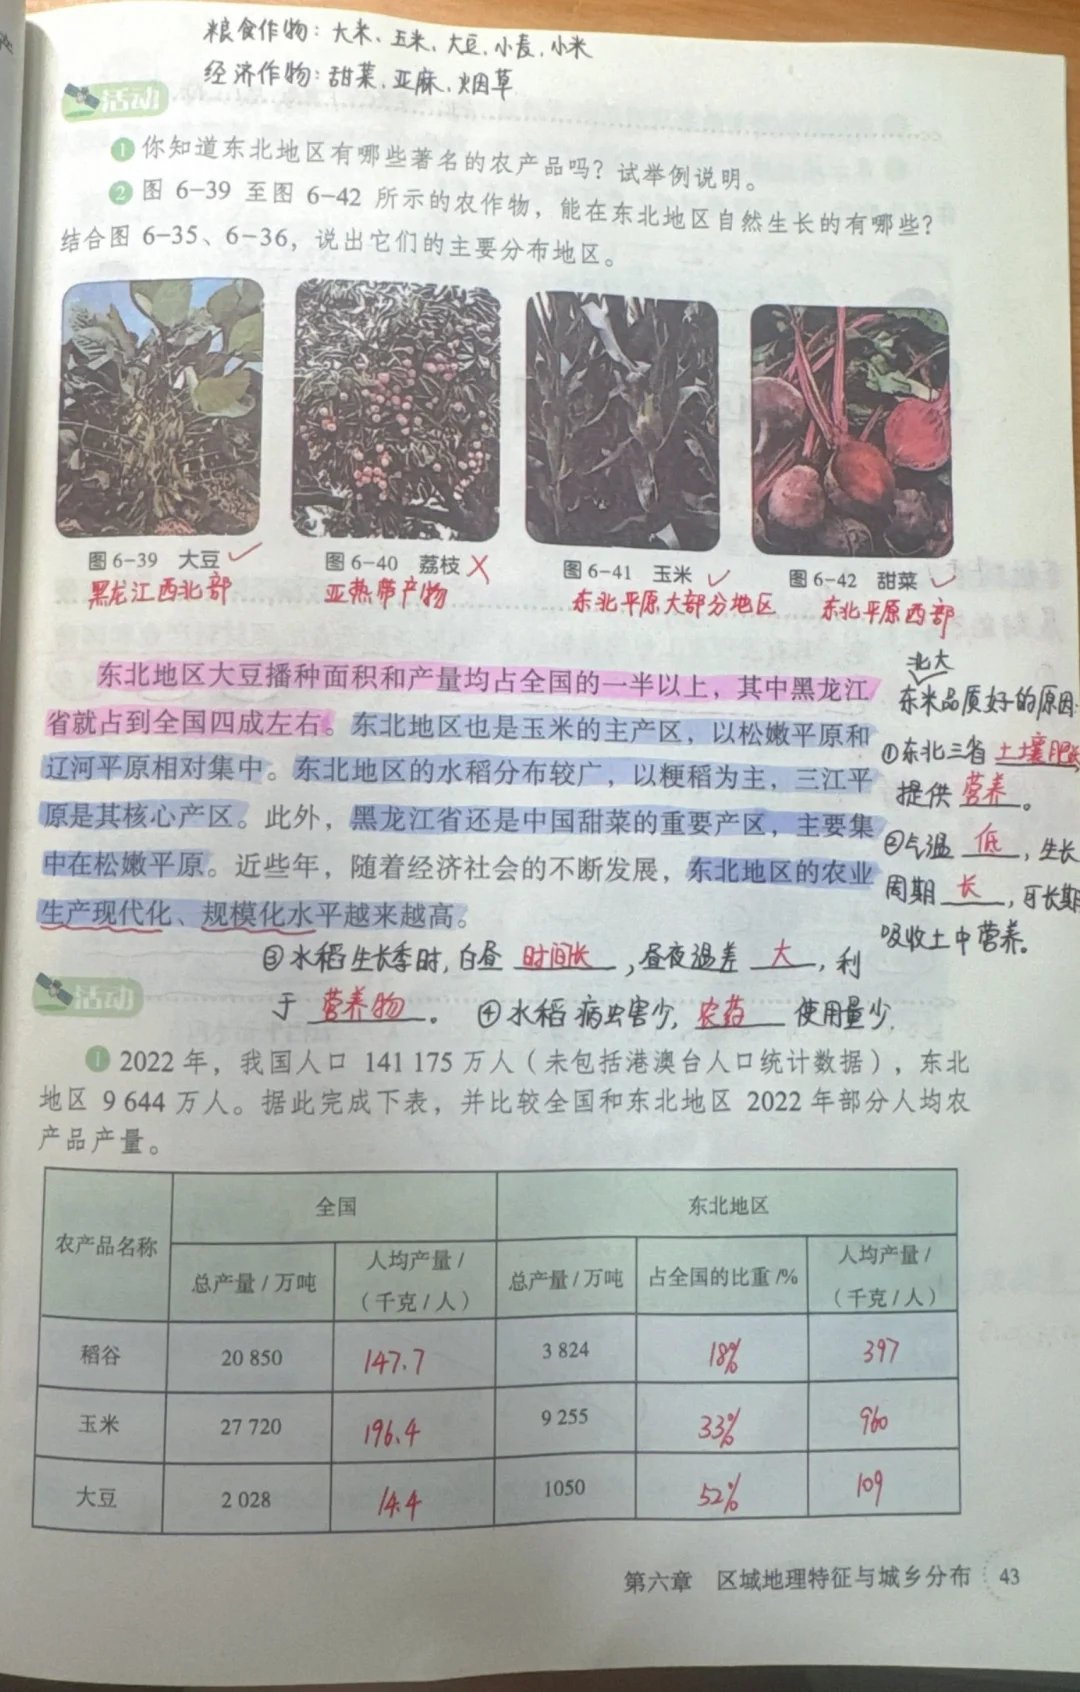 粮食作物：大米、玉米、大豆、小麦、小米
经济作物：甜菜、亚麻、烟草
活动
1 你知道东北地区有哪些著名的农产品吗？试举例说明。
2 图 6-39 至图 6-42 所示的农作物，能在东北地区自然生长的有哪些？
结合图 6-35、6-36，说出它们的主要分布地区。
图 6-39 大豆 ✓
黑龙江西北部
图 6-40 荔枝 ✗
亚热带产物
图 6-41 玉米 ✓
东北平原大部分地区
图 6-42 甜菜 ✓
东北平原西部
东北地区大豆播种面积和产量均占全国的一半以上，其中黑龙江
省就占到全国四成左右。东北地区也是玉米的主产区，以松嫩平原和
辽河平原相对集中。东北地区的水稻分布较广，以粳稻为主，三江平
原是其核心产区。此外，黑龙江省还是中国甜菜的重要产区，主要集
中在松嫩平原。近些年，随着经济社会的不断发展，东北地区的农业
生产现代化、规模化水平越来越高。
北大
东米品质好的原因:
①东北三省 土壤肥沃
提供 营养 。
②气温 低 ，生长
周期 长 ，可长期
吸收土中营养。
③水稻生长季时，白昼 时间长 ，昼夜温差 大 ，利
于 营养物 。 ④水稻病虫害少，农药 使用量少.
活动
1 2022 年，我国人口 141 175 万人（未包括港澳台人口统计数据），东北
地区 9 644 万人。据此完成下表，并比较全国和东北地区 2022 年部分人均农
产品产量。
农产品名称 全国 东北地区
总产量 / 万吨 人均产量 /（千克 / 人） 总产量 / 万吨 占全国的比重 /% 人均产量 /（千克 / 人）
稻谷 20 850 147.7 3 824 18% 397
玉米 27 720 196.4 9 255 33% 960
大豆 2 028 14.4 1050 52% 109
第六章 区域地理特征与城乡分布 43